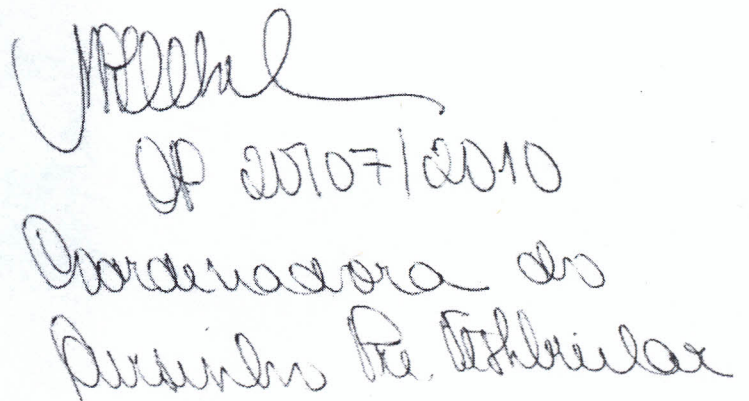 OP 20/07/2010
Coordenadora do
Cursinho Pré-Vestibular